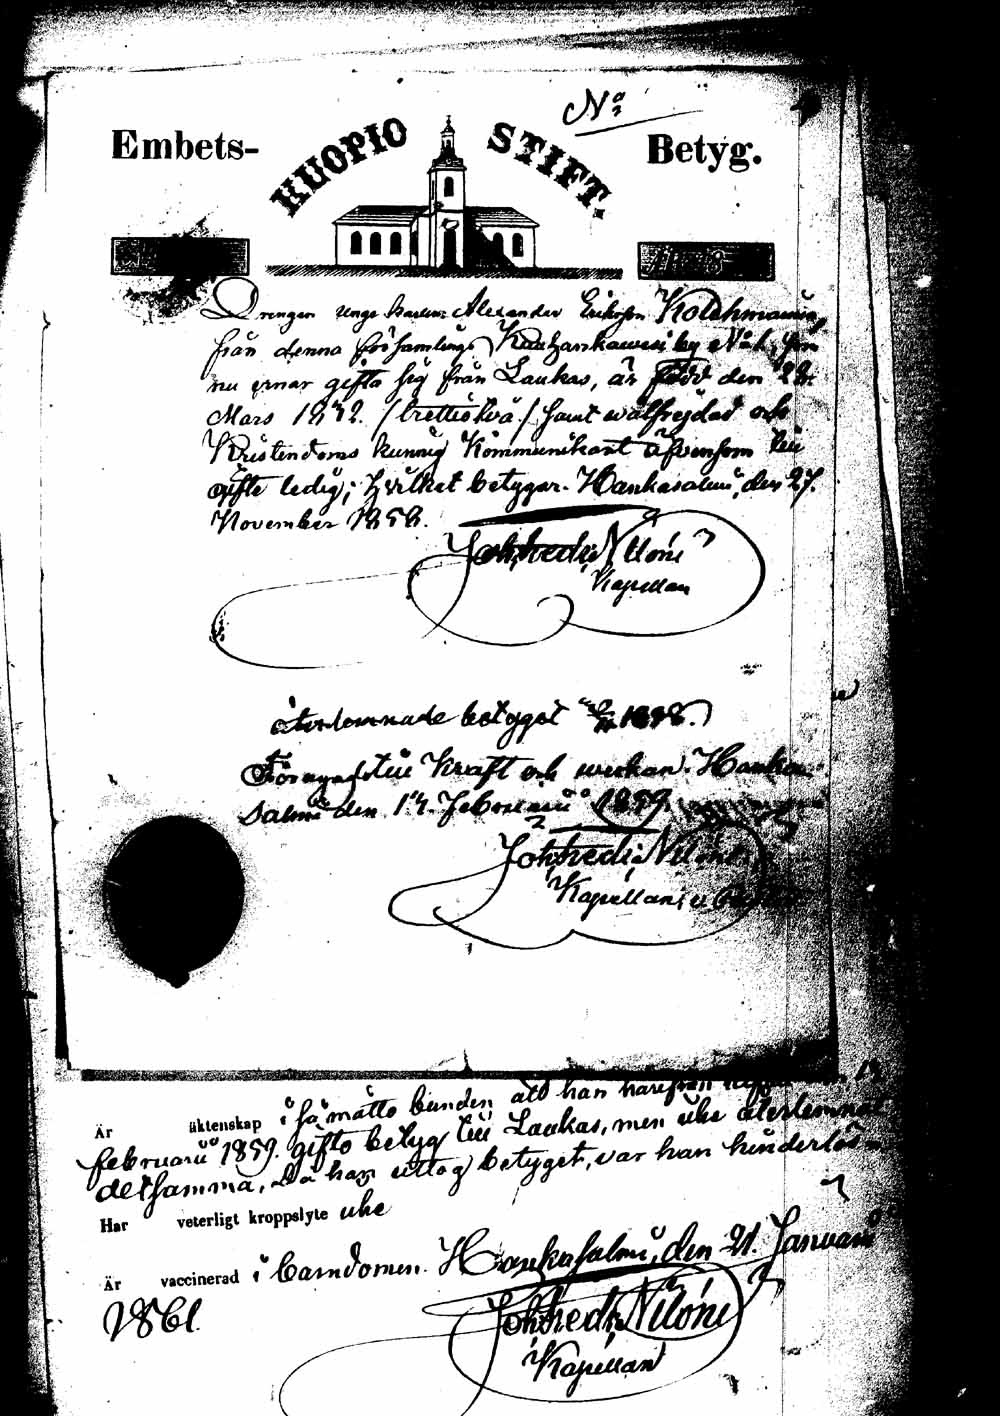 No
Embets- KUOPIO STIFT. Betyg.
Drengen unge karlen Alexander Eriksson Kolehmainen,
från denna församlings Kautzankawesi by No 1, som
nu ernar gifta sig från Laukas, är född den 28.
Mars 1832. (trettiotvå) samt wälfrejdad och
Kristendoms kunnig Kommunikant äfvensom till
gifte ledig; hvilket betygar. Hankasalmi, den 27.
November 1858.
Joh. Fredr. Nilóni
Kapellan
återlemnade betyget 1858.
Förnyas till kraft och werkan. Hanka-
salmi den 14. Februarii 1859.
Joh. Fredr. Nilóni
Kapellan
Är äktenskap i så måtto bunden att han härifrån
Februarii 1859. gifto betyg till Laukas, men icke återlemnat
detsamma, Då han uttog betyget, var han hinderlös
Har veterligt kroppslyte icke
Är vaccinerad i barndomen. Hankasalmi, den 21. Januarii
1861.
Joh. Fredr. Nilóni
Kapellan